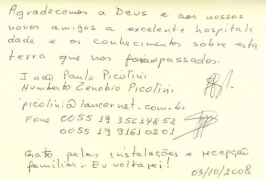 Agradecemos a Deus e aos nossos
novos amigos a excelente hospitali
dade e os conhecimentos sobre esta
terra que nos foram passados.
João Paulo Picolini
Humberto Zenobio Picolini
picolini@lancernet.com.br
Fone 0055 19 35614852
0055 19 91610201
Grato pelas instalações e recepção
familiar. Eu voltarei!
03/10/2008